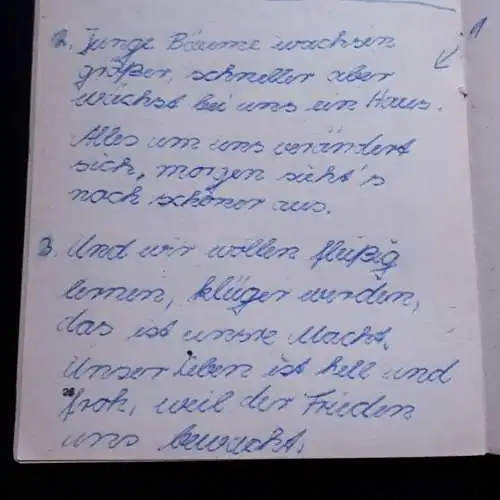 2. Junge Bäume wachsen
größer, schneller aber
wächst bei uns ein Haus.
Alles um uns verändert
sich, morgen sieht's
noch schöner aus.
3. Und wir wollen fleißig
lernen, klüger werden,
das ist unsre Macht.
Unser Leben ist hell und
froh, weil der Frieden
uns bewacht.